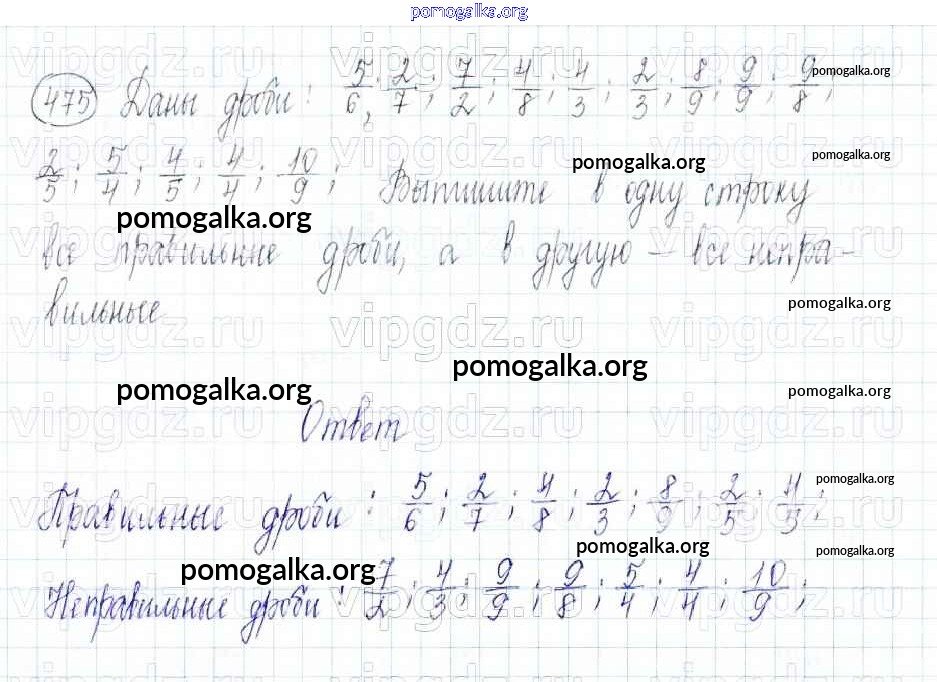 pomogalka.org
475 Даны дроби: 5/6; 2/7; 7/2; 4/8; 4/3; 2/3; 8/9; 9/9; 9/8;
2/5; 5/4; 4/5; 4/4; 10/9; Выпишите в одну строку
все правильные дроби, а в другую – все непра-
вильные
Ответ
Правильные дроби: 5/6; 2/7; 4/8; 2/3; 8/9; 2/5; 4/5;
Неправильные дроби: 7/2; 4/3; 9/9; 9/8; 5/4; 4/4; 10/9;
vipgdz.ru
pomogalka.org